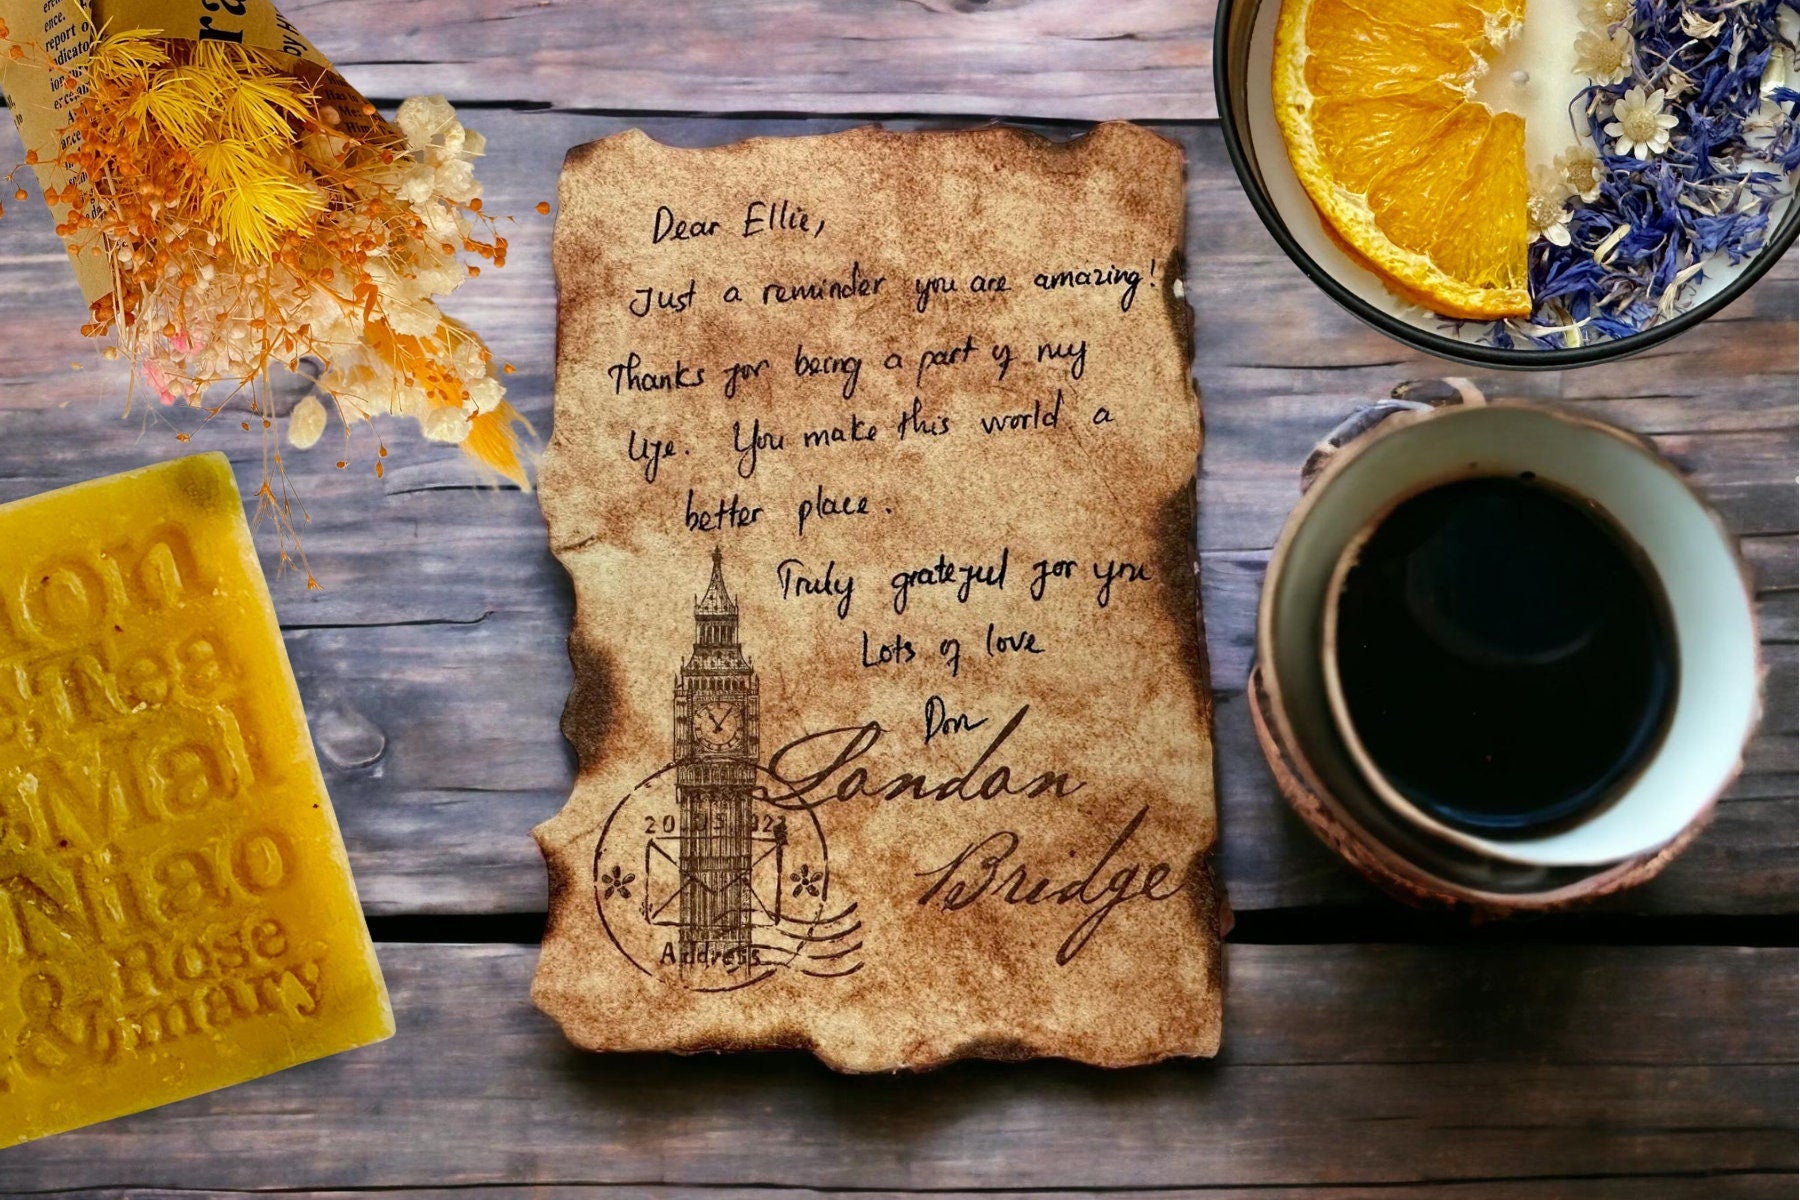 ence.
report o
ra
by
Dear Ellie,
Just a reminder you are amazing!
Thanks for being a part of my
life. You make this world a
better place.
Truly grateful for you
Lots of love
Don
London
Bridge
Address
on
Tea
Mal
Niao
Rose
& mary